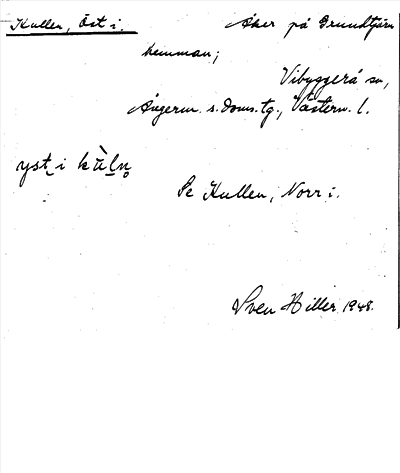 Kullen, Öst i. Åker på Grundtjärn
hemman;
Vibyggerå sn,
Ångerm. s. doms. tg., Västern. l.
yst i kùln̥
Se Kullen, Norr i.
Sven Hiller 1948.